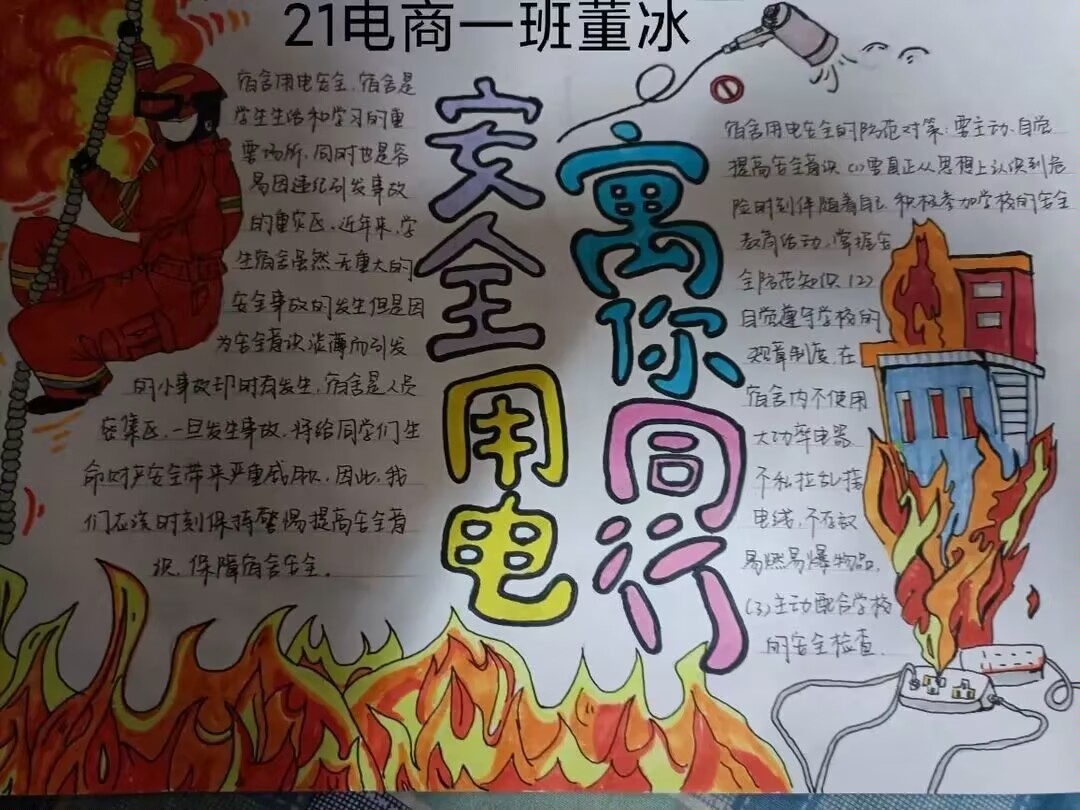 21电商一班董冰
安全用电
寓你同行
宿舍用电安全，宿舍是
学生生活和学习的重
要场所，同时也是容
易因违纪引发事故
的重灾区，近年来，学
生宿舍虽然无重大的
安全事故的发生但是因
为安全意识淡薄而引发
的小事故却时有发生，宿舍是人员
密集区，一旦发生事故，将给同学们生
命财产安全带来严重威胁，因此，我
们应该时刻保持警惕提高安全意
识，保障宿舍安全。
宿舍用电安全的防范对策：要主动、自觉
提高安全意识（1）要真正从思想上认识到危
险时刻伴随着自己 积极参加学校的安全
教育活动，掌握安
全防范知识（2）
自觉遵守学校的
规章制度，在
宿舍内不使用
大功率电器
不私拉乱接
电线，不存放
易燃易爆物品，
（3）主动配合学校
的安全检查．